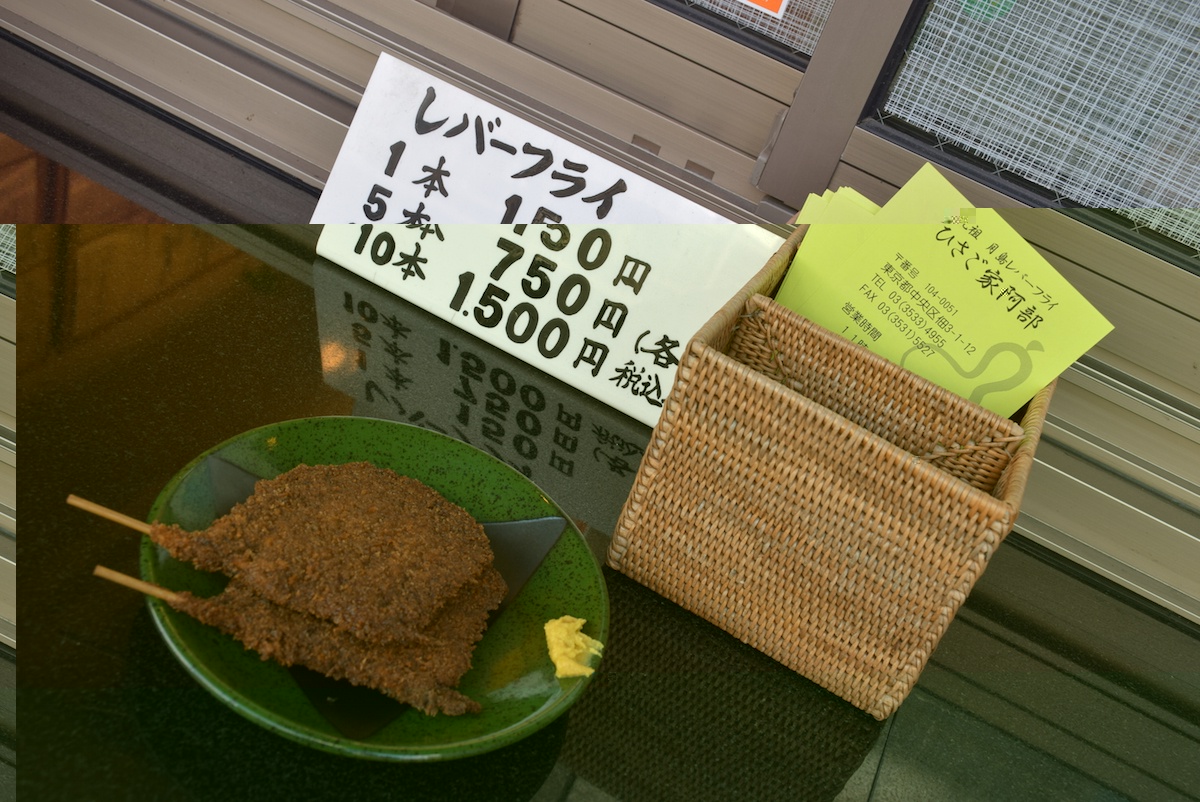 レバーフライ
1本 150円
5本 750円
10本 1.500円
(各
税込
元祖 月島レバーフライ
ひさご家阿部
〒番号 104-0051
東京都中央区佃3-1-12
TEL 03(3533)4955
FAX 03(3531)5527
営業時間